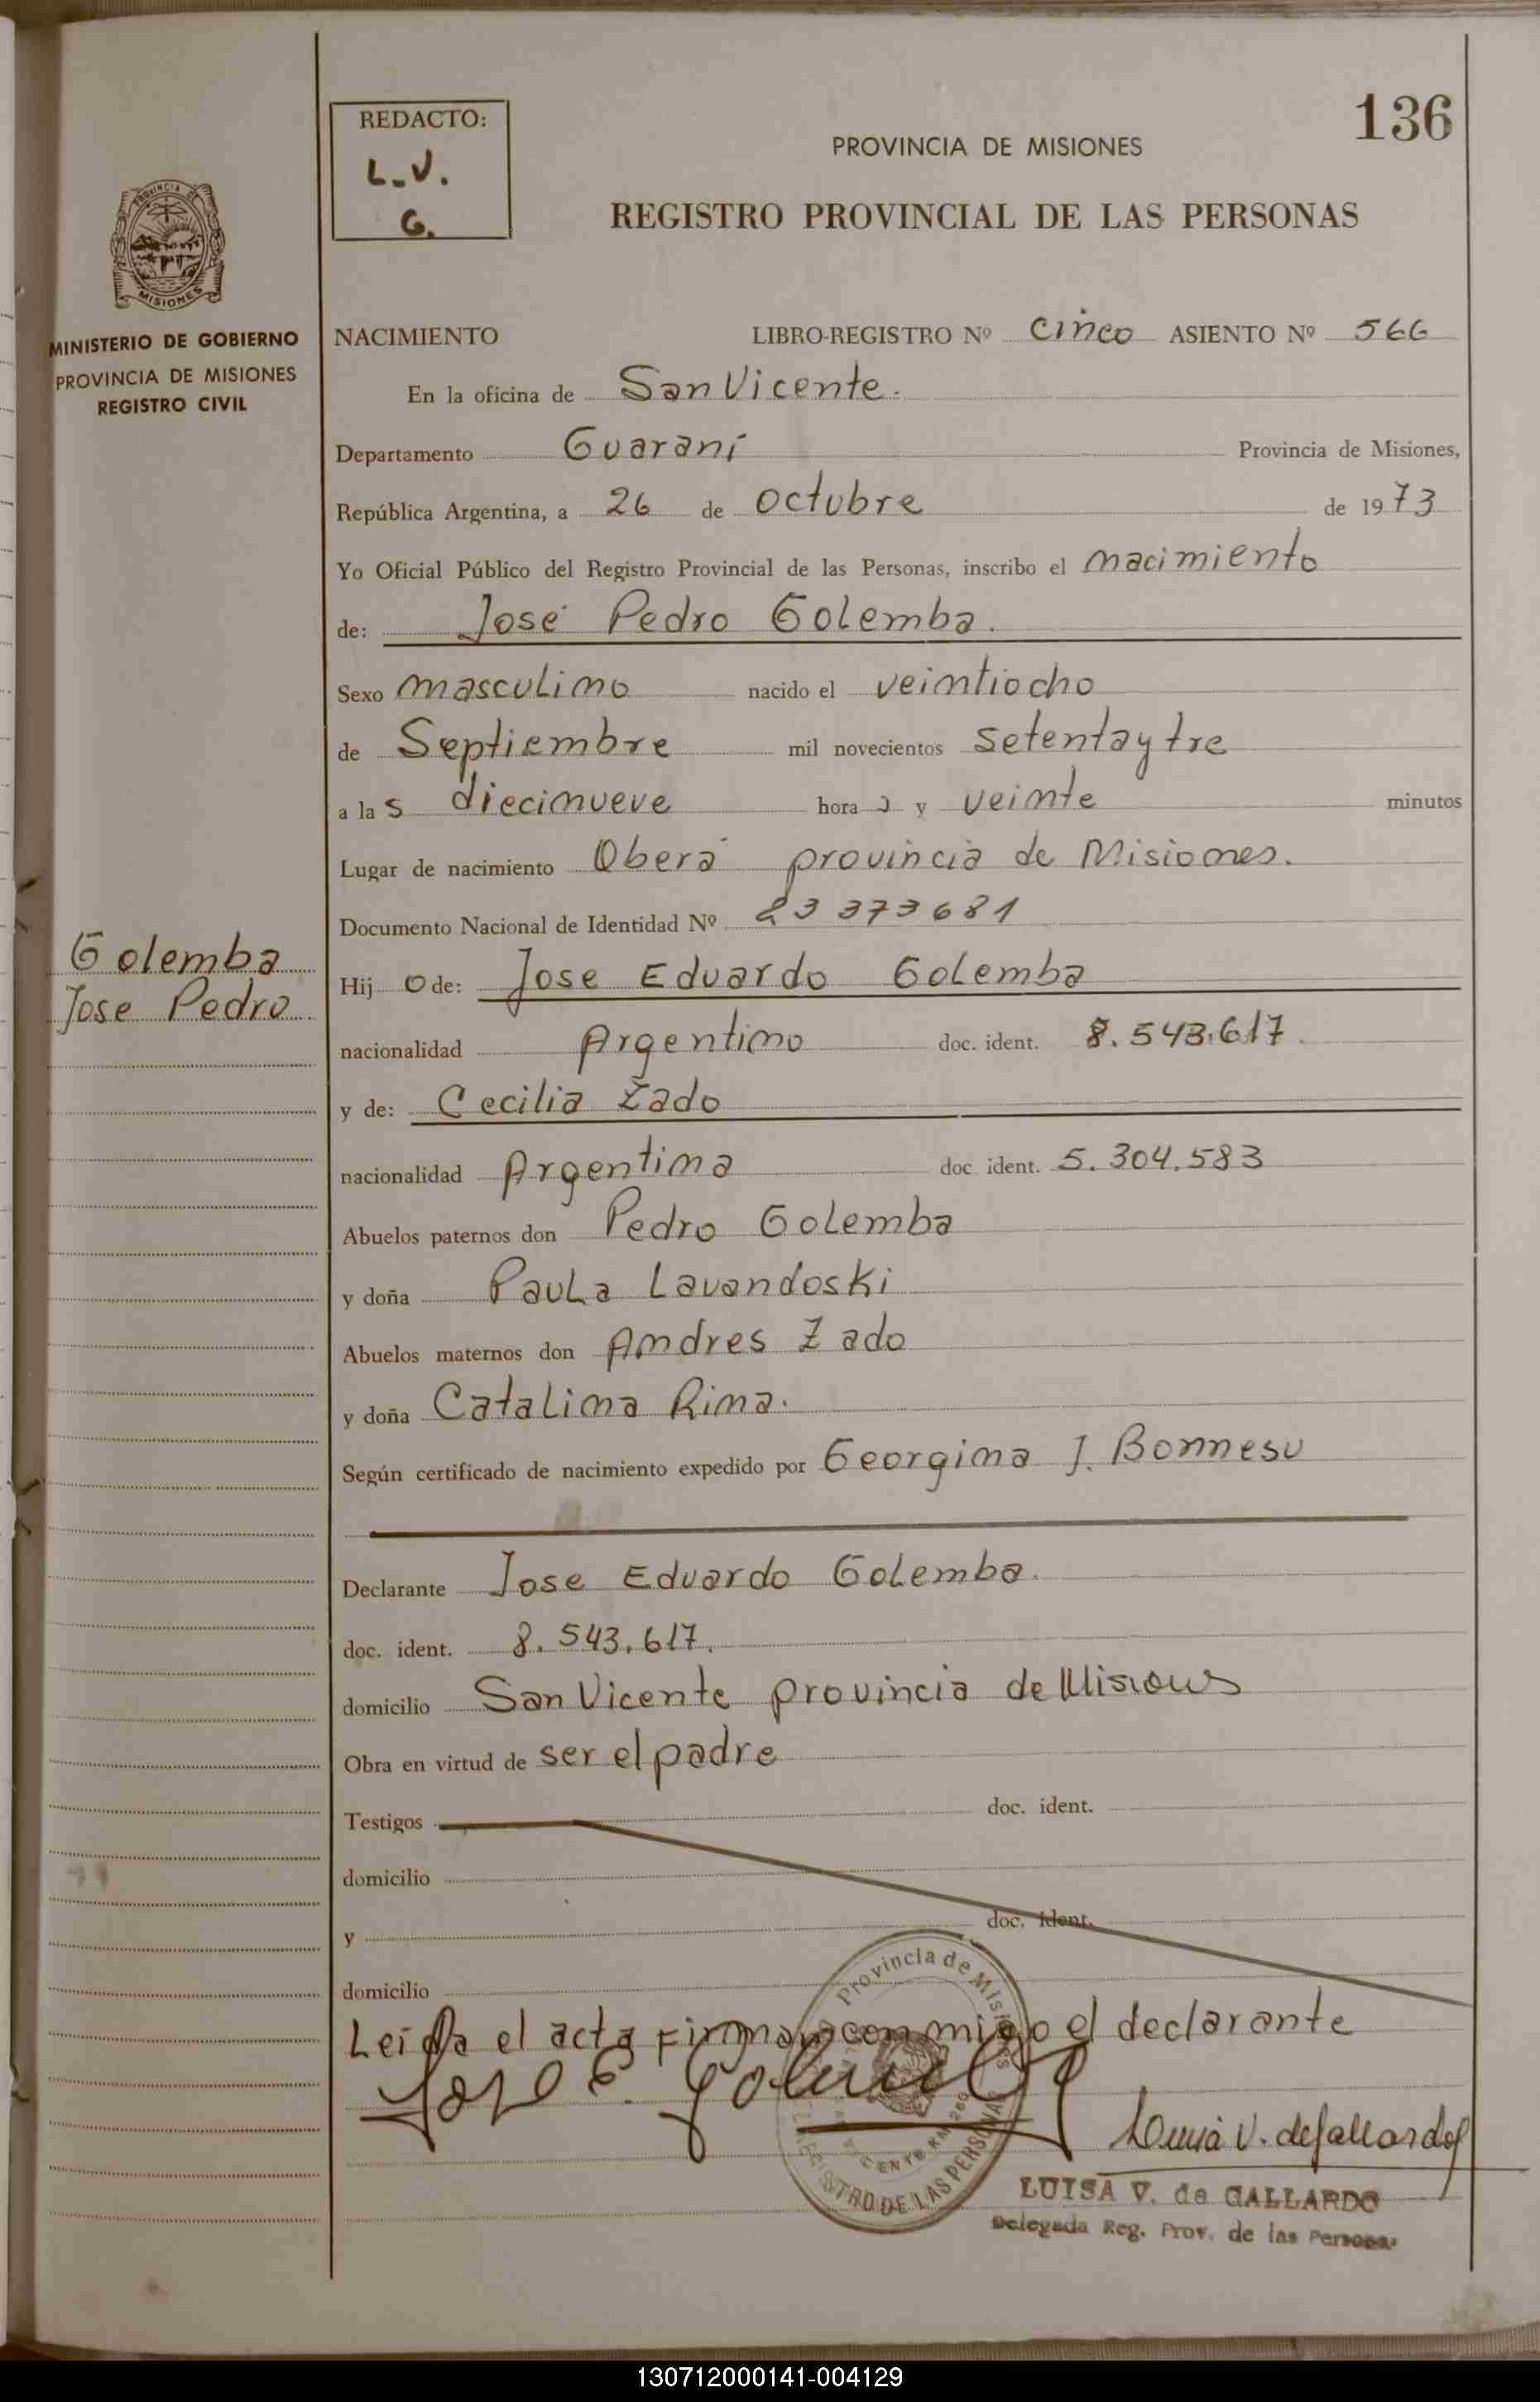 136
REDACTO:
L.V.
G.
PROVINCIA DE MISIONES
REGISTRO PROVINCIAL DE LAS PERSONAS
MISIONES
MINISTERIO DE GOBIERNO
PROVINCIA DE MISIONES
REGISTRO CIVIL
NACIMIENTO LIBRO-REGISTRO Nº cinco ASIENTO Nº 566
En la oficina de San Vicente.
Departamento Guaraní Provincia de Misiones,
República Argentina, a 26 de octubre de 1973
Yo Oficial Público del Registro Provincial de las Personas, inscribo el nacimiento
de: José Pedro Golemba.
Sexo masculino nacido el veintiocho
de Septiembre mil novecientos setentaytre
a las diecinueve hora s y veinte minutos
Lugar de nacimiento Oberá provincia de Misiones.
Documento Nacional de Identidad Nº 23 373681
Golemba
Jose Pedro
Hij o de: Jose Eduardo Golemba
nacionalidad Argentino doc. ident. 8.543.617.
y de: Cecilia Zado
nacionalidad Argentina doc ident. 5.304.583
Abuelos paternos don Pedro Golemba
y doña Paula Lavandoski
Abuelos maternos don Andres Zado
y doña Catalina Rina.
Según certificado de nacimiento expedido por Georgina J. Bonnesu
Declarante Jose Eduardo Golemba.
doc. ident. 8.543.617.
domicilio San Vicente provincia de Misiones
Obra en virtud de ser el padre
Testigos doc. ident.
domicilio
y doc. ident.
domicilio
Leida el acta firman conmigo el declarante
Jose E. Golemba
Provincia de Misiones
REGISTRO DE LAS PERSONAS
Luisa V. de Gallardo
LUISA V. de GALLARDO
Delegada Reg. Prov. de las Personas
130712000141-004129